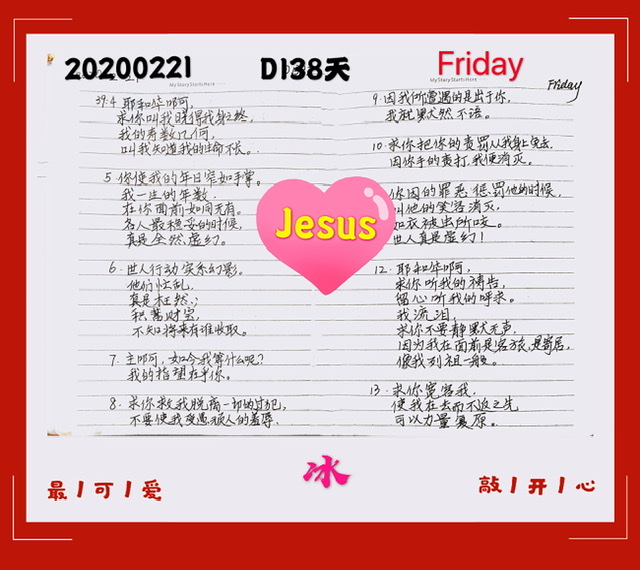 20200221
D138天
Friday
My Story Starts Here
My Story Starts Here
Friday
39:4 耶和华啊,
求你叫我晓得我身之终,
我的寿数几何,
叫我知道我的生命不长。
5. 你使我的年日窄如手掌。
我一生的年数
在你面前如同无有。
各人最稳妥的时候,
真是全然虚幻。
6. 世人行动实系幻影。
他们忙乱,
真是枉然;
积蓄财宝,
不知将来有谁收取。
7. 主啊,如今我等什么呢?
我的指望在乎你。
8. 求你救我脱离一切的过犯,
不要使我受愚顽人的羞辱。
9. 因我所遭遇的是出于你,
我就默然不语。
10. 求你把你的责罚从我身上免去,
因你手的责打,我便消灭。
你因的罪恶惩罚他的时候,
叫他的笑容消灭,
如衣被虫所咬。
世人真是虚幻!
12. 耶和华啊,
求你听我的祷告,
留心听我的呼求。
我流泪,
求你不要静默无声,
因为我在面前是客旅,是寄居,
像我列祖一般。
13. 求你宽容我,
使我在去而不返之先
可以力量复原。
Jesus
冰
最丨可丨爱
敲丨开丨心